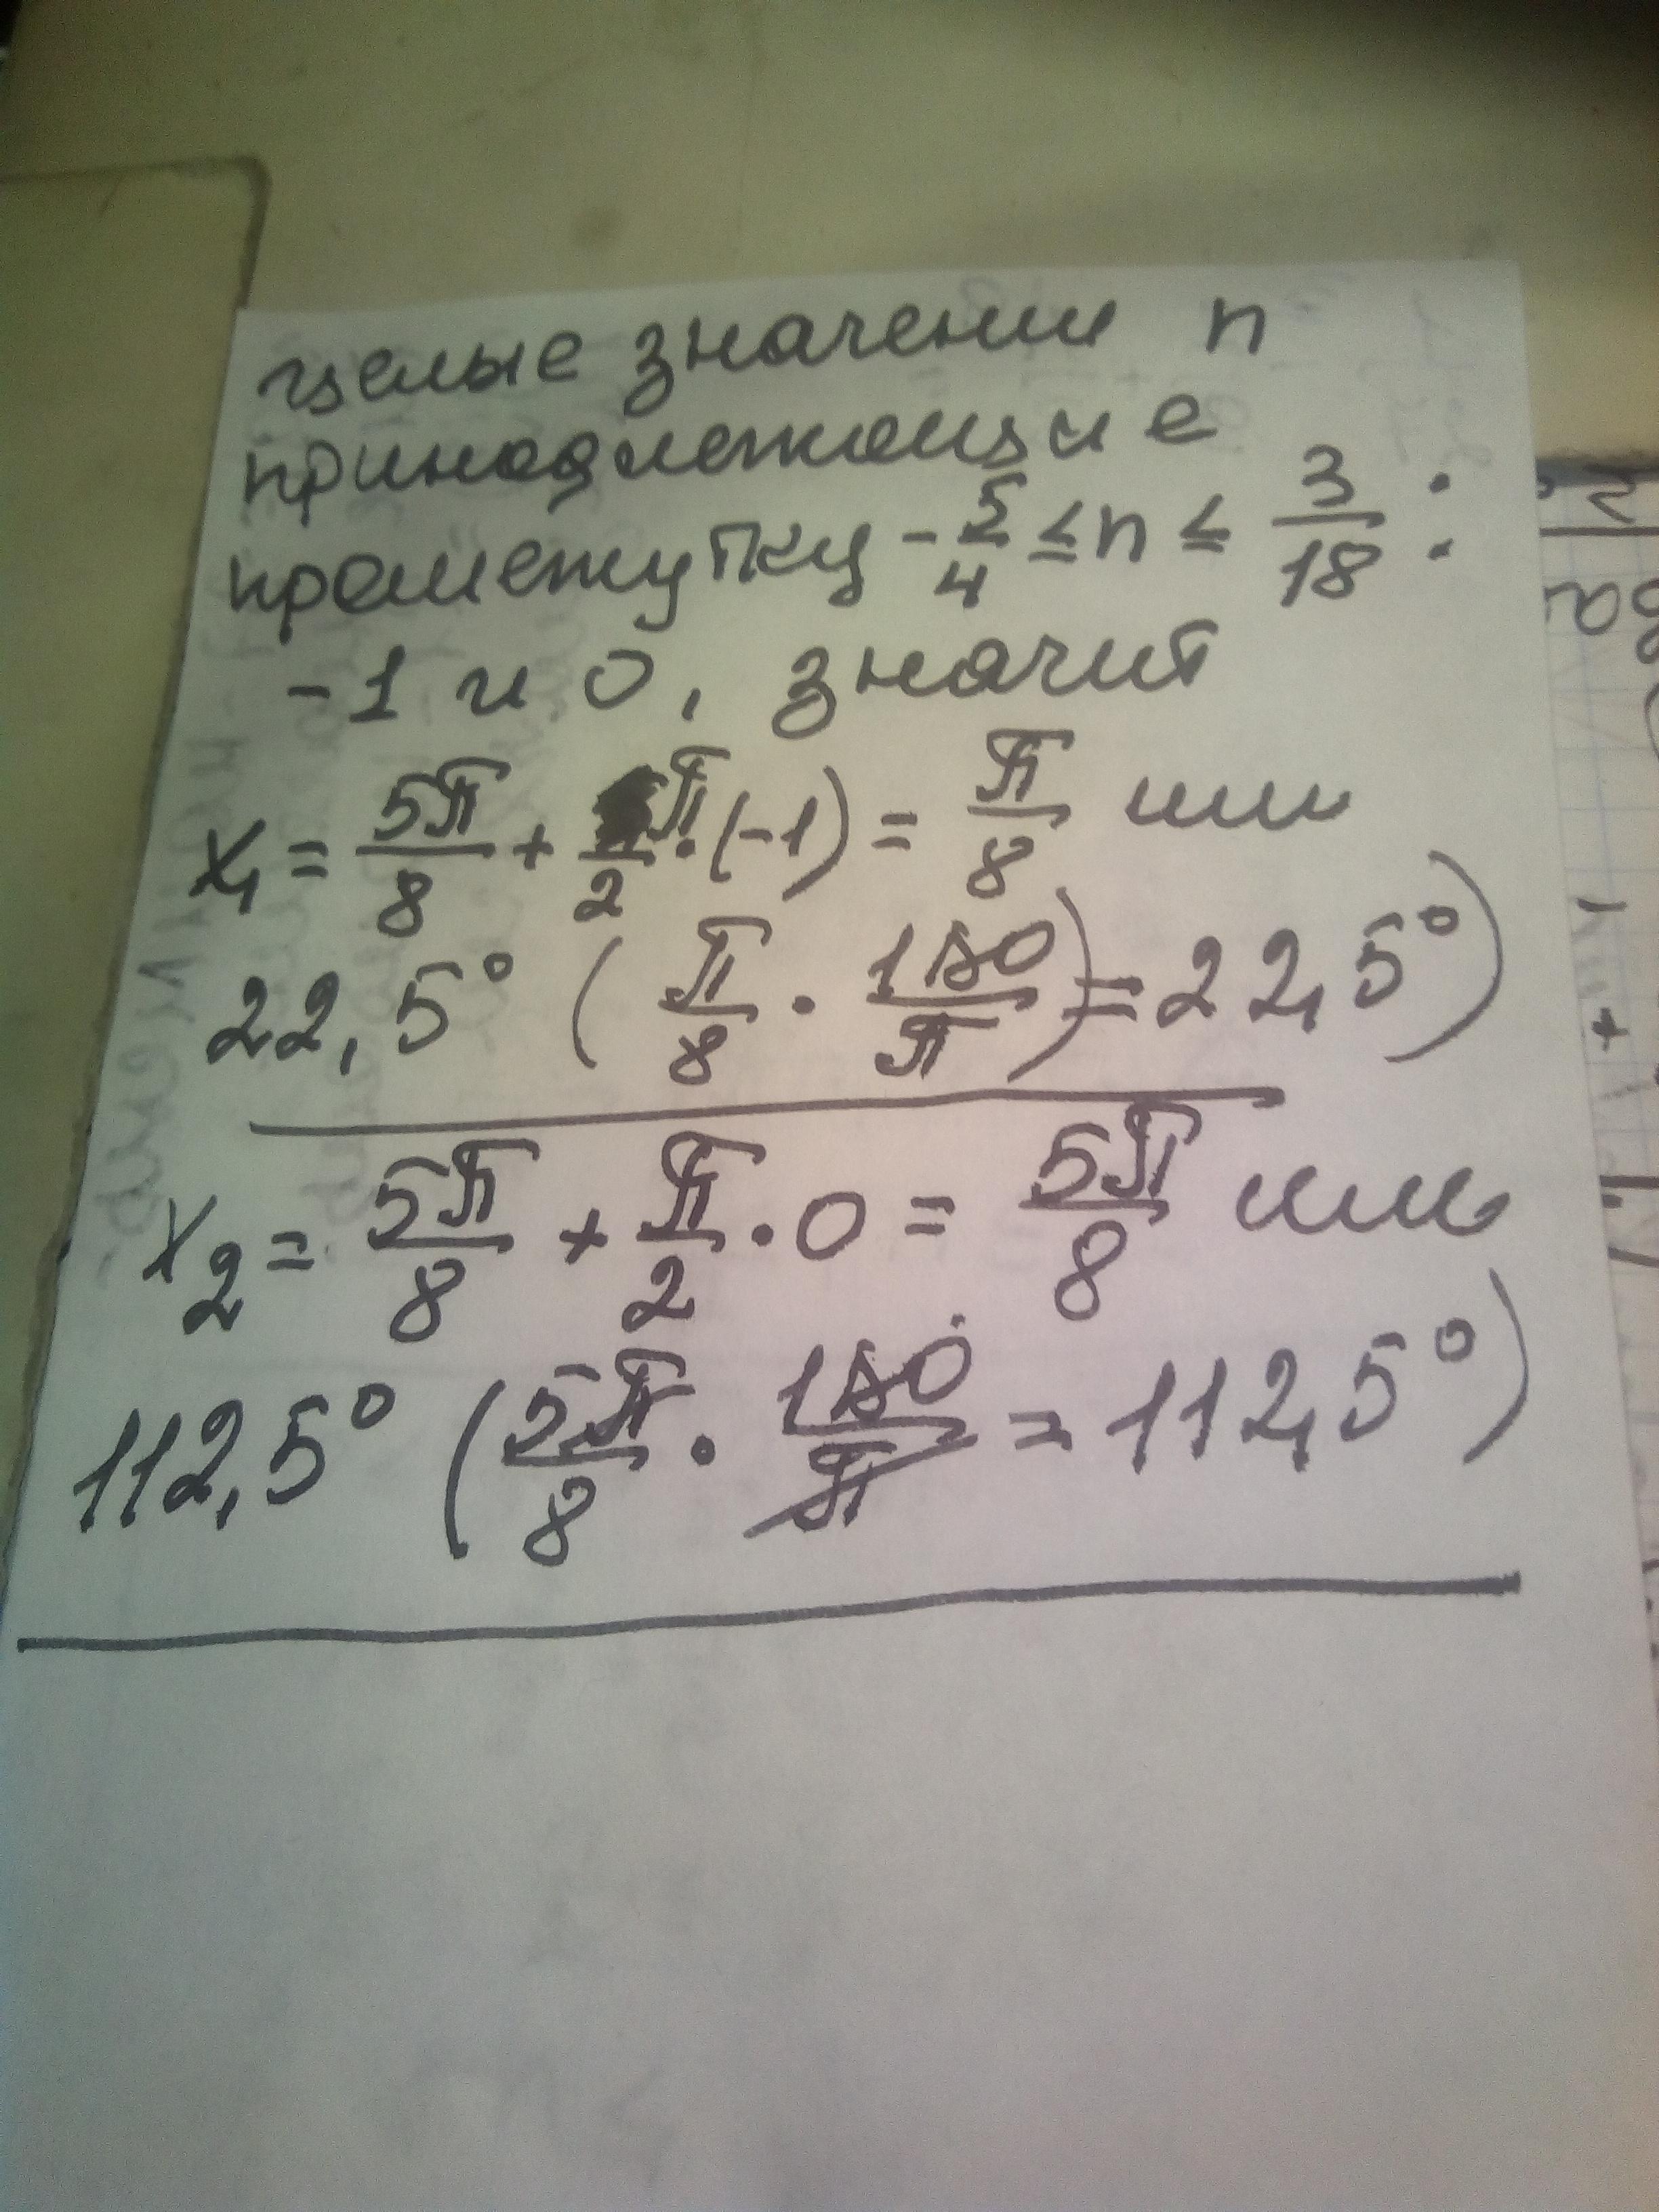 целые значении n
принадлежащие
промежутку -5/4 ≤ n ≤ 3/18 :
-1 и 0, значит
x₁ = 5π/8 + π/2 · (-1) = π/8 или
22,5° ( π/8 · 180/π ) = 22,5° )
x₂ = 5π/8 + π/2 · 0 = 5π/8 или
112,5° ( 5π/8 · 180/π = 112,5° )